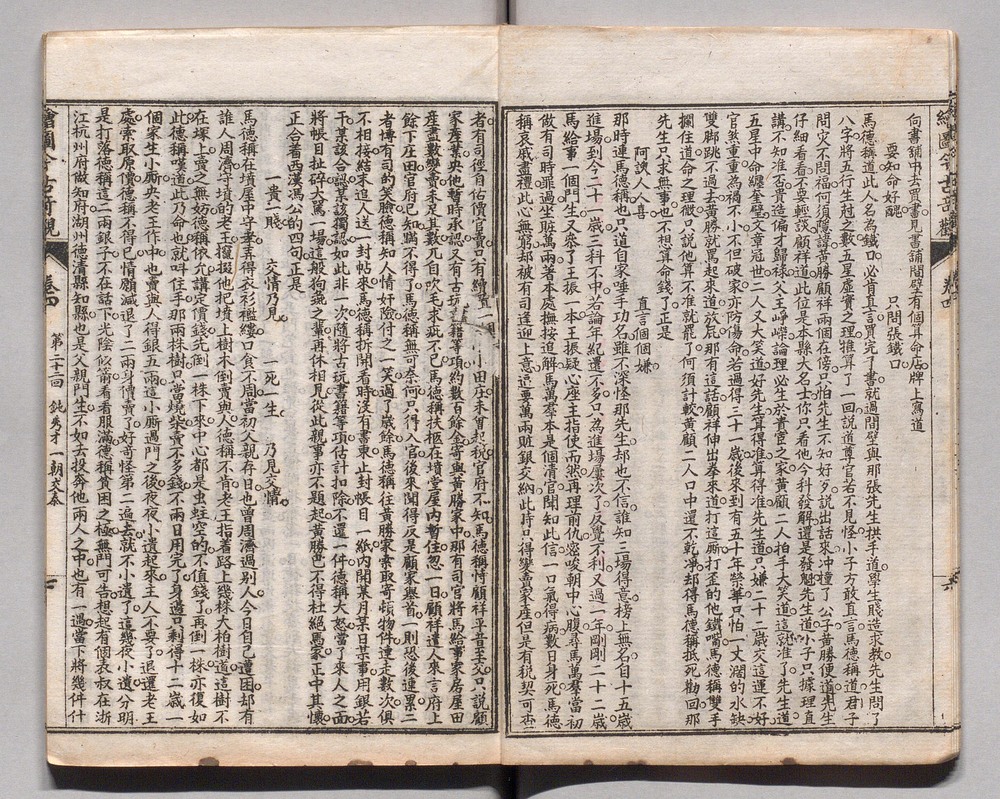 繪圖今古奇觀 卷四
向書鋪中去買書見書鋪間壁有個算命店牌上寫道
要知命好醜　只問張鐵口
馬德稱道此人名為鐵口必肯直言買完了書就過間壁與那張先生拱手道學生賤造求教先生問了
八字將五行生尅之數五星虛實之理推算了一回說道尊官若不見怪小子方敢直言馬德稱道君子
問災不問福何須隱諱黃勝顧祥兩個在傍只怕先生不知好歹說出話來冲撞了公子黃勝便道先生
仔細看看不要輕談顧祥道此位是本縣大名士你只看他今科發解還是發魁先生道小子只據理直
講不知准否貴造偏才歸祿父主崢嶸論理必生於貴宦之家黃顧二人拍手大笑道這就准了先生道
五星中命纏奎壁文章冠世二人又大笑道好先生算得准算得准先生道只嫌二十二歲交這運不好
官煞重重為禍不小不但破家亦防傷命若過得三十一歲後來到有五十年榮華只怕一丈濶的水缺
雙脚跳不過去黃勝就罵起來道放屁那有這話顧祥伸出拳來道打這廝打歪的他鐵嘴馬德稱雙手
攔住道命之理微只說他算不准就罷了何須計較黃顧二人口中還不乾凈却得馬德稱抵死勸回那
先生只求無事也不想算命錢了正是
阿諛人人喜　直言個個嫌
那時連馬德稱也只道自家唾手功名雖不深怪那先生却也不信誰知三場得意榜上無名自十五歲
進場到今二十一歲三科不中若論年紀還不多只為進場屢次了反覺不利又過一年剛剛二十二歲
馬給事一個門生又參了王振一本王振疑心座主指使而然再理前仇密唆朝中心腹尋馬萬羣當初
做有司時罪過坐贓萬兩著本處撫按追解馬萬羣本是個清官聞知此信一口氣得病數日身死馬德
稱哀戚盡禮此心無窮却被有司逢迎上意逼要萬兩贓銀交納此時只得變賣家產但是有稅契可查
者有司徑自佑價官賣只有續置一個小小田庄未曾起稅官府不知馬德稱恃顧祥平昔至交只說顧
家產業央他暫時承認又有古玩書籍等項約數百金寄與黃勝家中那有司官將馬給事家房屋田
產盡數變賣未足其數兀自吹毛求疵不已馬德稱扶柩在墳堂屋內暫住忽一日顧祥遣人來言府上
餘下庄田官府已知瞞不得了馬德稱無可奈何只得入官後來聞得反是顧家舉首一則恐後連累二
者博有司的笑臉德稱知人情奸險付之一笑過了歲餘馬德稱往黃勝家索取寄頓物件連走數次俱
不相接結末遣人送一封帖來馬德稱拆開看時沒有書柬止封帳目一紙內開某月某日某事用銀若
干某該合認某該獨認如此非一次隨將古玩書籍等項估計扣除不還一件德稱大怒當了來人之面
將帳目扯碎大罵一場這般狗彘之輩再休相見從此親事亦不題起黃勝巴不得杜絕馬家正中其懷
正合著西漢馮公的四句正是
一貴一賤　交情乃見　一死一生　乃見交情
馬德稱在墳屋中守孝弄得衣衫襤縷口食不周當初父親存日也曾周濟過別人今日自己遭困却有
誰人周濟守墳的老王攛掇他把墳上樹木倒賣與人德稱不肯老王指着路上幾株大柏樹道這樹不
在塚上賣之無妨德稱依允講定價錢先倒一株下來中心都是虫蛀空的不值錢了再倒一株亦復如
此德稱嘆道此乃命也就叫住手那兩株樹只當燒柴賣不多錢不兩日用完了身邊只剩得十二歲一
個家生小廝央老王作中也賣與人得銀五兩這小廝過門之後夜夜小遺起來主人不要了退還老王
處索取原價德稱不得已情願減退了二兩身價賣了好奇怪第二遍去就不小遺了這幾夜小遺分明
是打落德稱這二兩銀子不在話下光陰似箭看看服滿德稱貧困之極無門可告想起有個表叔在浙
江杭州府做知府湖州德清縣知縣也是父親門生不如去投奔他兩人之中也有一遇當下將幾件什
繪圖今古奇觀 卷四 第二十二回 鈍秀才一朝交泰